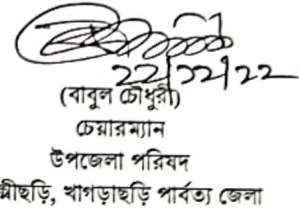 ২২/১২/২২
(বাবুল চৌধুরী)
চেয়ারম্যান
উপজেলা পরিষদ
খাগড়াছড়ি পার্বত্য জেলা